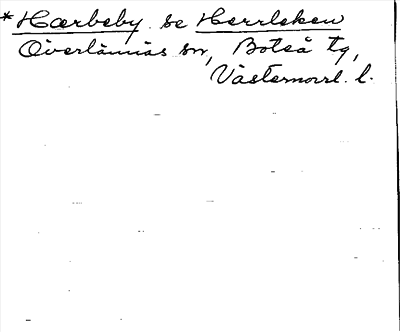 *Hærbeby se Herrleken
Överlännäs sn, Boteå tg,
Västernorrl. l.